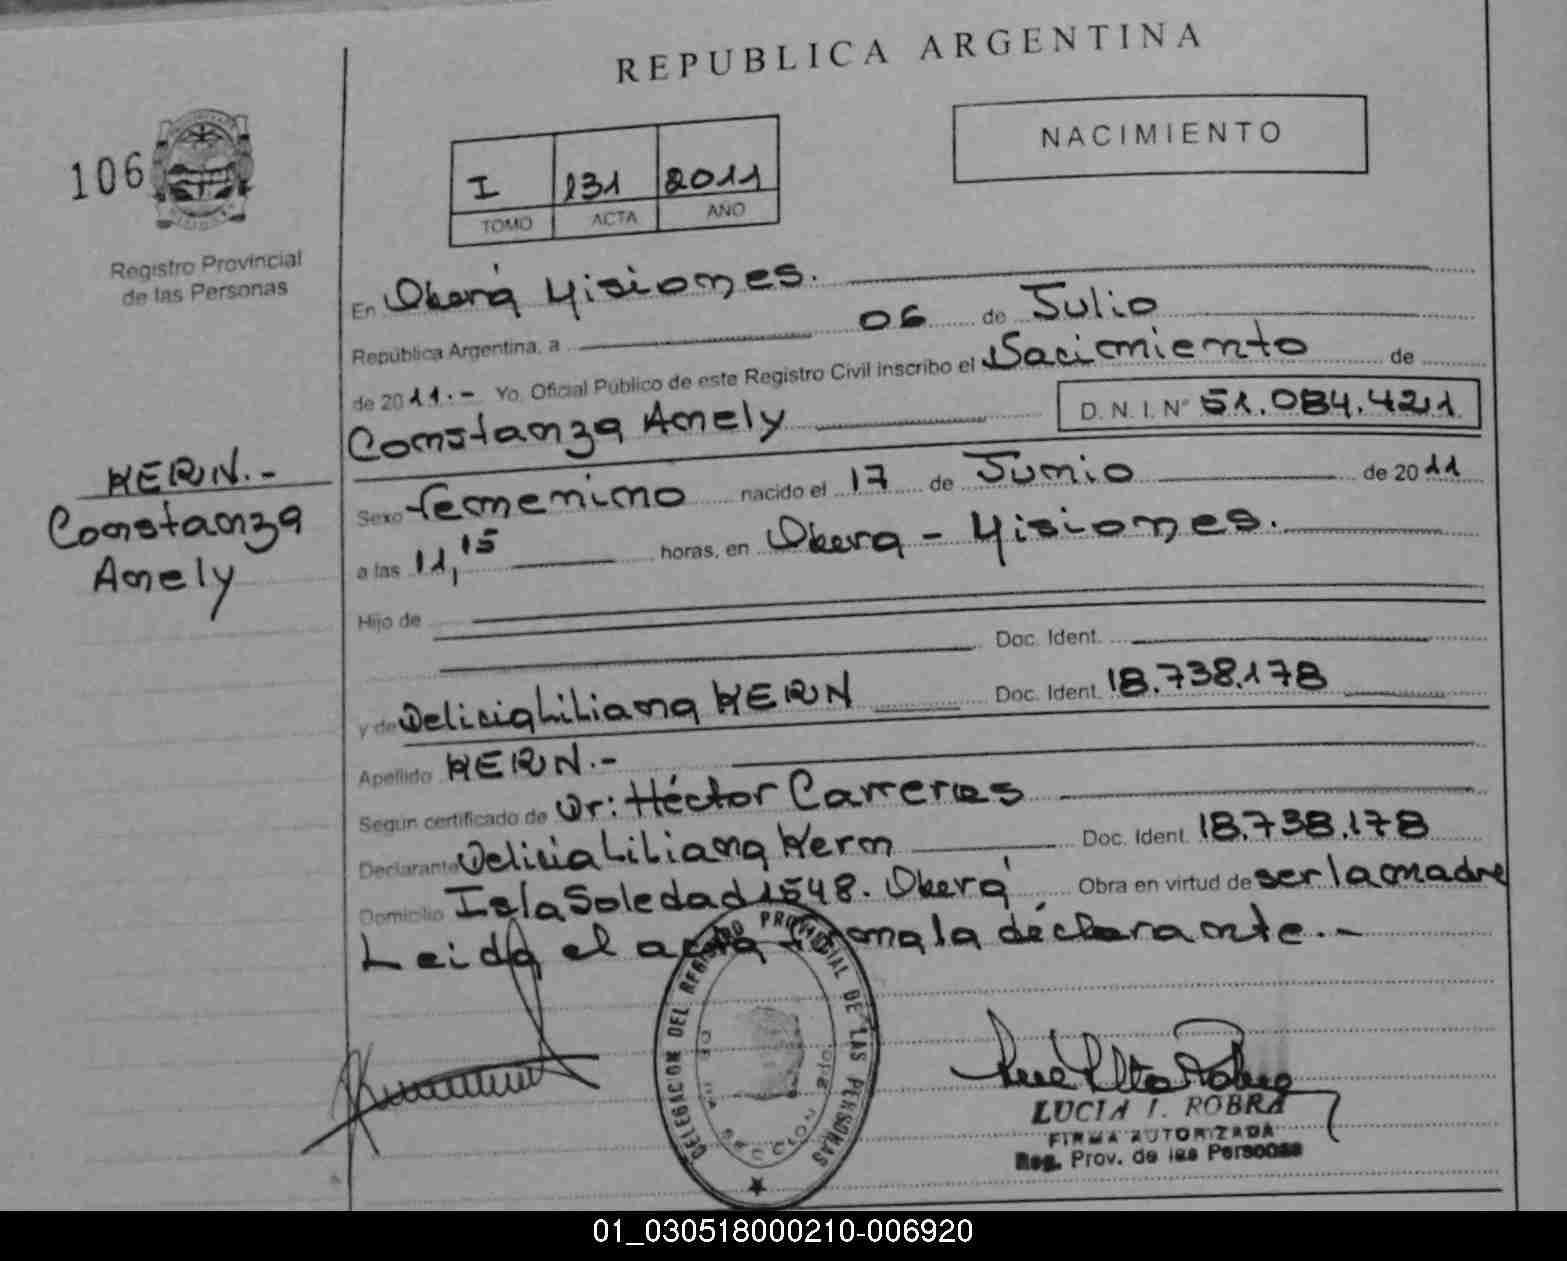 REPUBLICA ARGENTINA
NACIMIENTO
106
I 131 2011
TOMO ACTA AÑO
Registro Provincial
de las Personas
En Oberá Misiones.
República Argentina, a 06 de Julio
de 2011.- Yo, Oficial Público de este Registro Civil inscribo el Nacimiento de
Constanza Anely D. N. I. Nº 51.084.421
KERN.-
Constanza
Anely
Sexo femenino nacido el 17 de Junio de 2011
a las 11,15 horas, en Oberá - Misiones.
Hijo de
Doc. Ident.
y de Delicia Liliana KERN Doc. Ident. 18.738.178
Apellido KERN.-
Según certificado de Dr: Héctor Carreras
Declarante Delicia Liliana Kern Doc. Ident. 18.738.178
Domicilio Isla Soledad 1548. Oberá Obra en virtud de ser la madre
Leida el acta firma la declarante.-
DELEGACION DEL REGISTRO PROVINCIAL DE LAS PERSONAS
LUCIA I. ROBRA
FIRMA AUTORIZADA
Reg. Prov. de las Personas
01_030518000210-006920